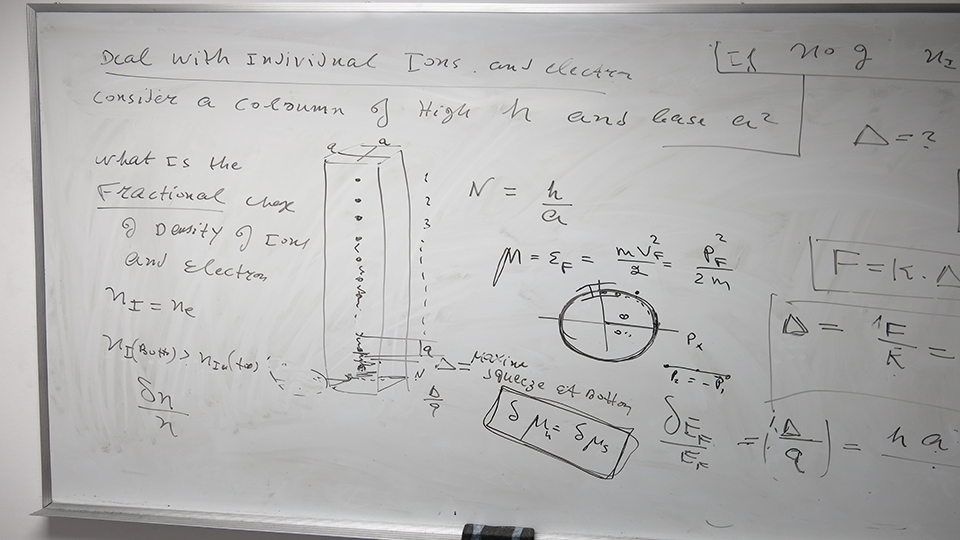 Deal with Individual Ions and electron
Consider a coloumn of High h and base a²
What Is the
Fractional
of Density of Ions
and electron
n_I = n_e
n_I(Bott) > n_I
δn/n
a a
1
2
3
a
N
Δ/a
N = h/a
μ = ε_F = mV_F²/2 = P_F²/2m
P_x
P₂ = -P₁
Δ =
squeeze at Bottom
δμ = δμ_s
δE_F/E_F = (Δ/a) = h a
If no g n_I
Δ = ?
F = K · Δ
Δ = F/K =